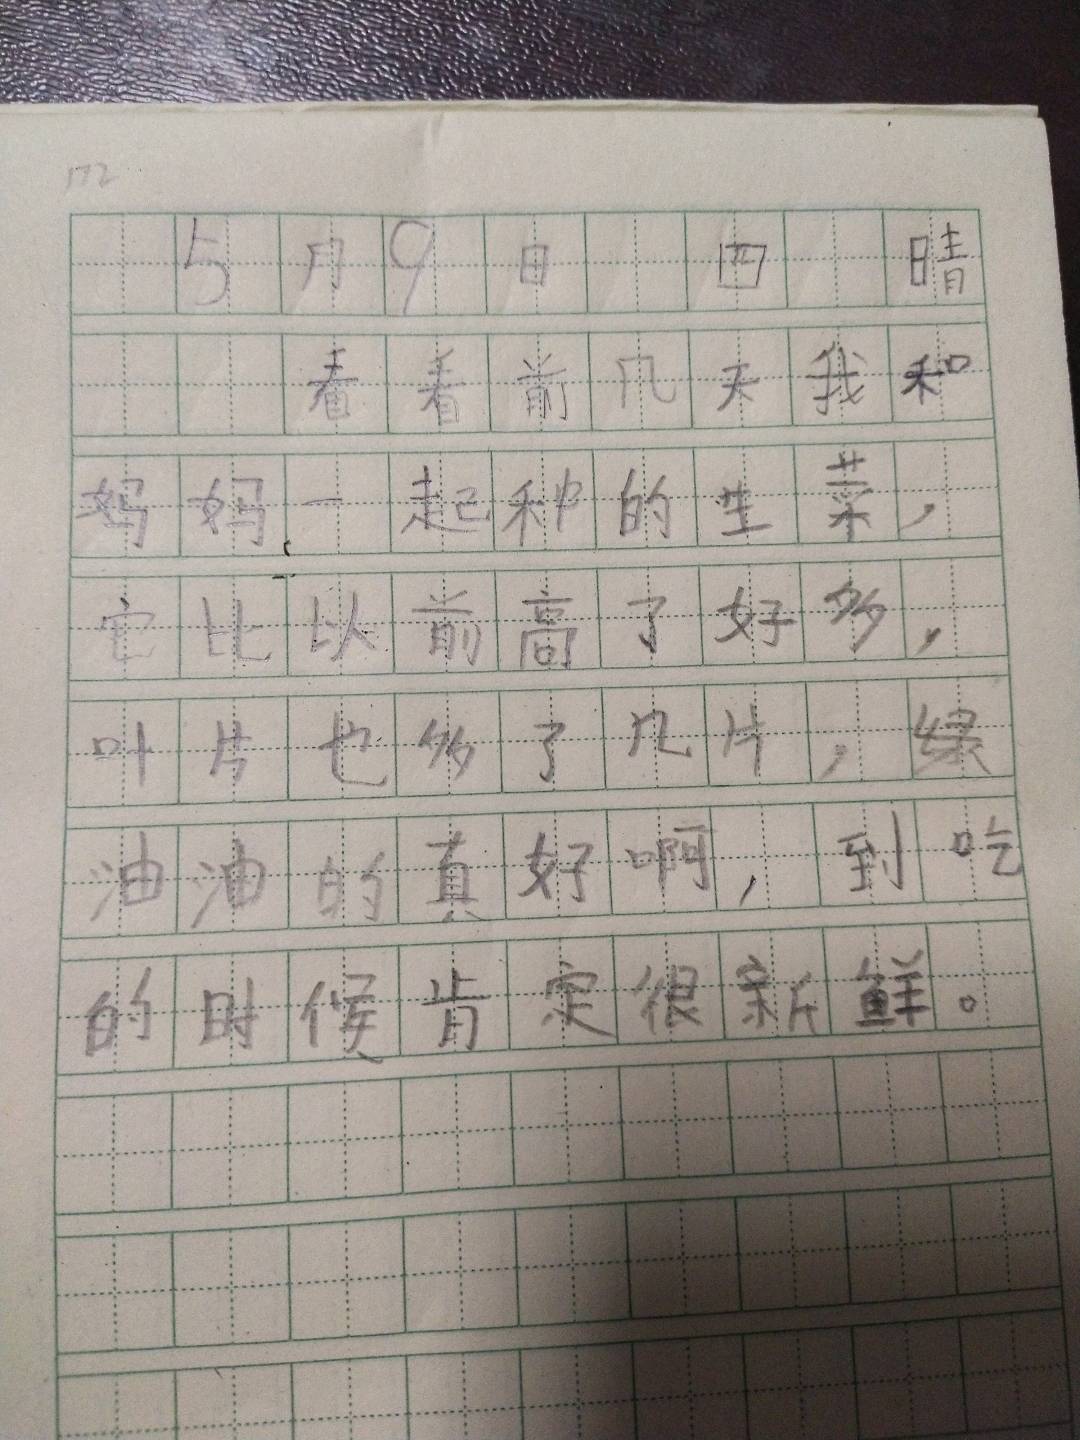 172
5月9日 四 晴
看看前几天我和
妈妈一起种的生菜，
它比以前高了好多，
叶片也多了几片，绿
油油的真好啊，到吃
的时候肯定很新鲜。